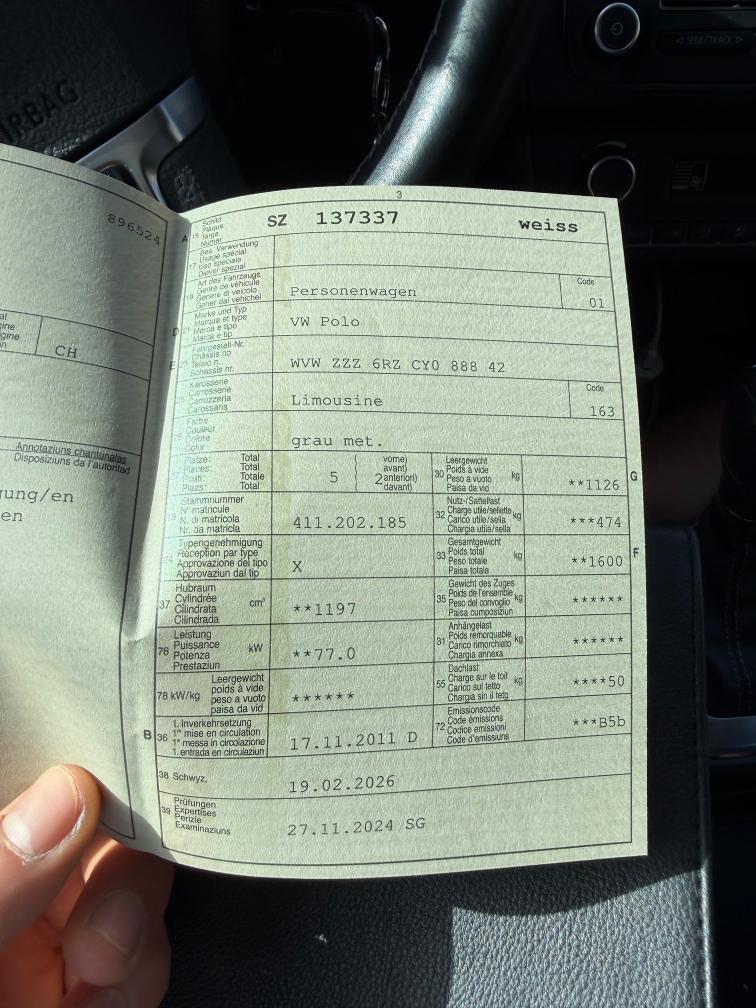 AIRBAG
SEEK/TRACK
896524
CH
Annotaziuns chantunalas
Disposiziuns da l'autoritad
3
A 15 Schild
Plaque
Targa
Numer
SZ 137337 weiss
17 Bes. Verwendung
Usage spécial
Uso speciale
Diever spezial
19 Art des Fahrzeugs
Genre de véhicule
Genere di veicolo
Gener dal vehichel
Personenwagen
Code
01
D 21 Marke und Typ
Marque et type
Marca e tipo
Marca e tip
VW Polo
E 23 Fahrgestell-Nr.
Châssis no
Telaio n.
Schassis nr.
WVW ZZZ 6RZ CY0 888 42
Karosserie
Carrosserie
Carrozzeria
Carossaris
Limousine
Code
163
Farbe
Couleur
Colore
Colur
grau met.
Plätze: Total
Places: Total
Posti: Totale
Plazs: Total
5 ( 2 vorne)
avant)
anteriori)
davant)
30 Leergewicht
Poids à vide
Peso a vuoto
Paisa da vid
kg
**1126
G
Stammnummer
N° matricule
N. di matricola
Nr. da matricla
411.202.185
32 Nutz-/Sattellast
Charge utile/sellette
Carico utile/sella
Chargia utila/sella
kg
***474
Typengenehmigung
Réception par type
Approvazione del tipo
Approvaziun dal tip
X
33 Gesamtgewicht
Poids total
Peso totale
Paisa totala
kg
**1600
F
37 Hubraum
Cylindrée
Cilindrata
Cilindrada
cm³
**1197
35 Gewicht des Zuges
Poids de l'ensemble
Peso del convoglio
Paisa cumposiziun
kg
******
76 Leistung
Puissance
Potenza
Prestaziun
kW
**77.0
31 Anhängelast
Poids remorquable
Carico rimorchiato
Chargia annexa
kg
******
78 kW/kg Leergewicht
poids à vide
peso a vuoto
paisa da vid
******
55 Dachlast
Charge sur le toit
Carico sul tetto
Chargia sin il tetg
kg
****50
B 36 1. Inverkehrsetzung
1re mise en circulation
1a messa in circolazione
1. entrada en circulaziun
17.11.2011 D
72 Emissionscode
Code émissions
Codice emissioni
Code d'emissiuns
***B5b
38 Schwyz,
19.02.2026
39 Prüfungen
Expertises
Perizie
Examinaziuns
27.11.2024 SG